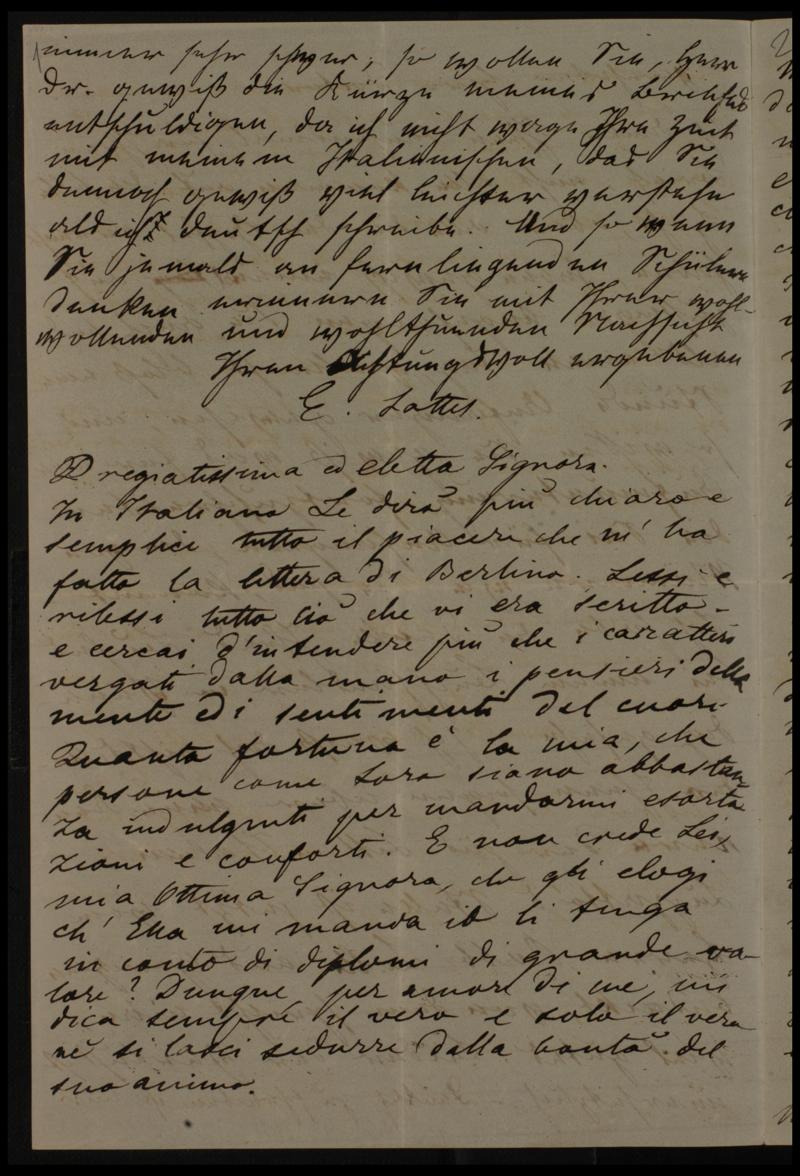 immer sehr schwer, so wollen Sie, Herr
Dr. gewiß die Kürze meines Briefes
entschuldigen, da ich nicht wage Ihre Zeit
mit meinem Italienischen, das Sie
dennoch gewiß viel leichter verstehn
als ich deutsch schreibe. Und so wenn
Sie jemals an fernliegenden Schülern
denken erinnern Sie mit Ihrer wohl-
wollenden und wohlthuenden Nachsicht
Ihren achtungsvoll ergebenen
E. Lattes.
Pregiatissima ed eletta Signora.
In Italiano Le dirò più chiaro e
semplice tutto il piacere che m'ha
fatto la lettera di Berlino. Lessi e
rilessi tutto ciò che vi era scritto -
e cercai d'intendere più che i caratteri
vergati dalla mano i pensieri della
mente ed i sentimenti del cuore
Quanta fortuna è la mia, che
persone come Loro siano abbastan
za indulgenti per mandarmi esorta
zioni e conforti. E non crede Lei,
mia Ottima Signora, che gli elogi
ch' Ella mi manda io li tenga
in conto di diplomi di grande va-
lore? Dunque, per amore di me, mi
dica sempre il vero e solo il vero
nè si lasci sedurre dalla bontà del
suo animo.